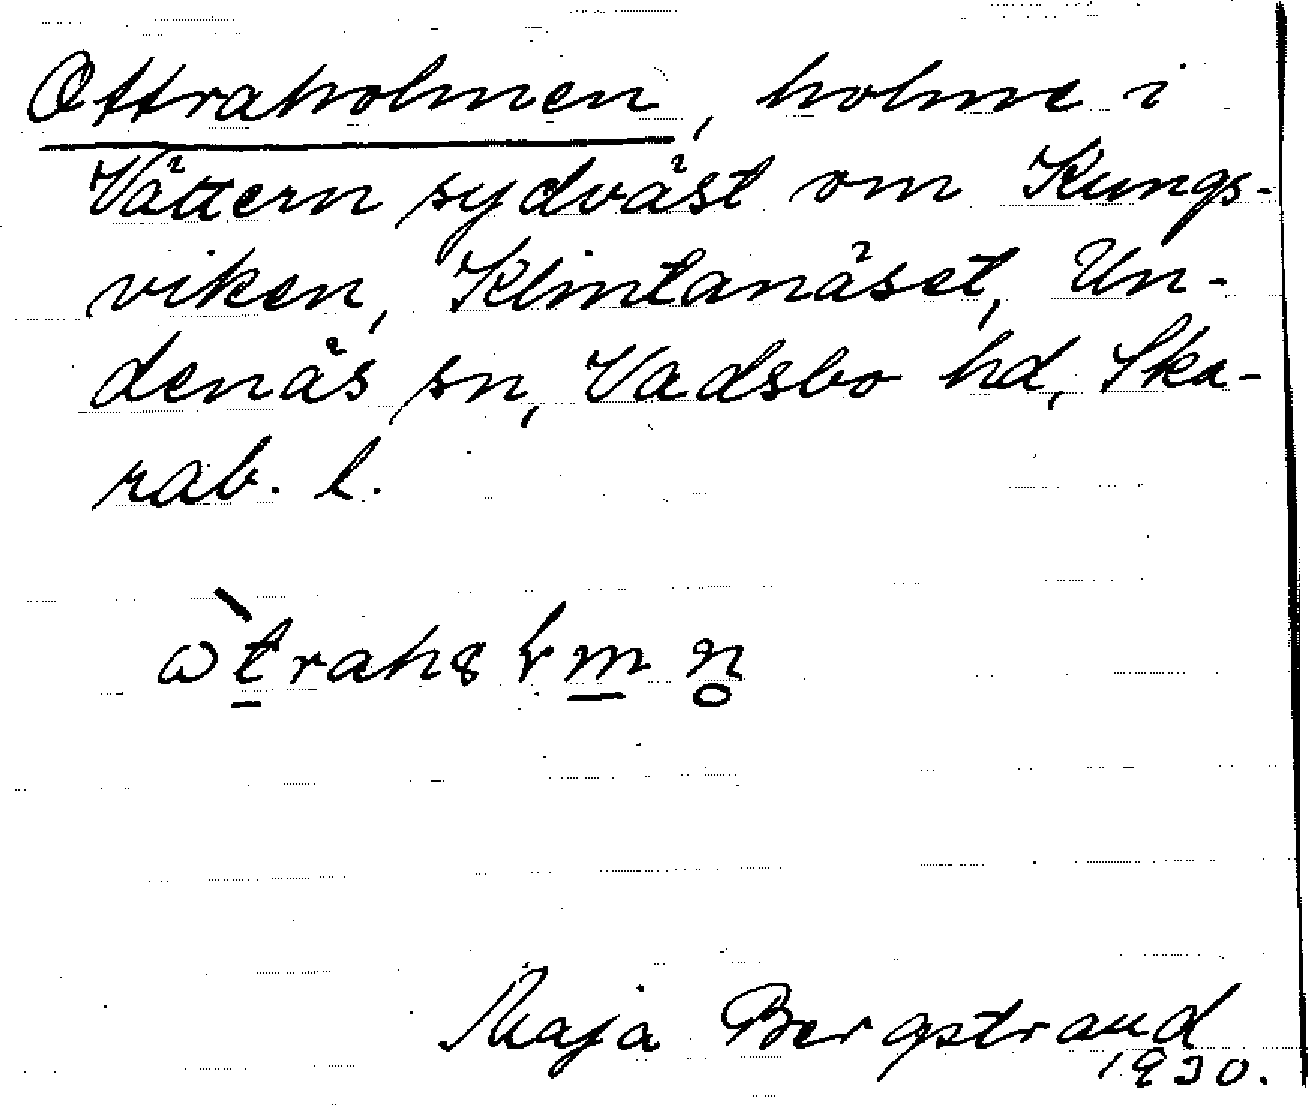 Ottraholmen, holme i
Vättern sydväst om Kungs-
viken, Klintanäset, Un-
denäs sn, Vadsbo hd, Ska-
rab. l.
Maja Bergstrand
1930.